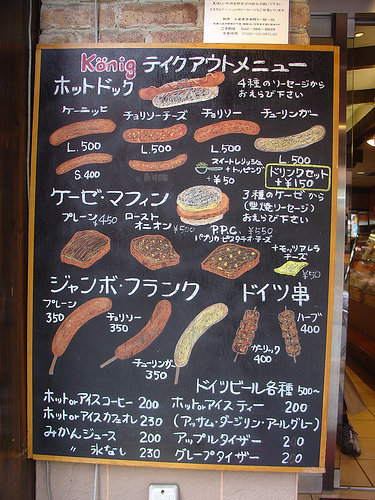 König テイクアウトメニュー
ホットドック
4種のソーセージから
おえらび下さい
ケーニッヒ チョリソーチーズ チョリソー チューリンガー
L.500 L.500 L.500 L.500
S.400
スイートレリッシュ
+トッピング
+¥50
ドリンクセット
+¥150
ケーゼ・マフィン
3種のケーゼから
おえらび下さい
プレーン ¥450 ロースト
オニオン ¥500
P.P.C. ¥550
パプリカ・ピスタチオ・チーズ
+モッツアレラ
チーズ
¥50
ジャンボ・フランク ドイツ串
プレーン
350
チョリソー
350
チューリンガー
350
ハーブ
400
ガーリック
400
ドイツビール各種 500~
ホットorアイスコーヒー 200
ホットorアイスカフェオレ 230
みかんジュース 200
〃 氷なし 230
ホットorアイスティー 200
(アッサム・ダージリン・アールグレー)
アップルタイザー
グレープタイザー